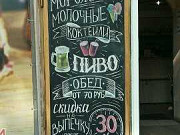 МОРО
МОЛОЧНЫЕ
КОКТЕЙЛИ
ПИВО
ОБЕД
ОТ 70 РУБ
СКИДКА
НА
ВЫПЕЧКУ
30